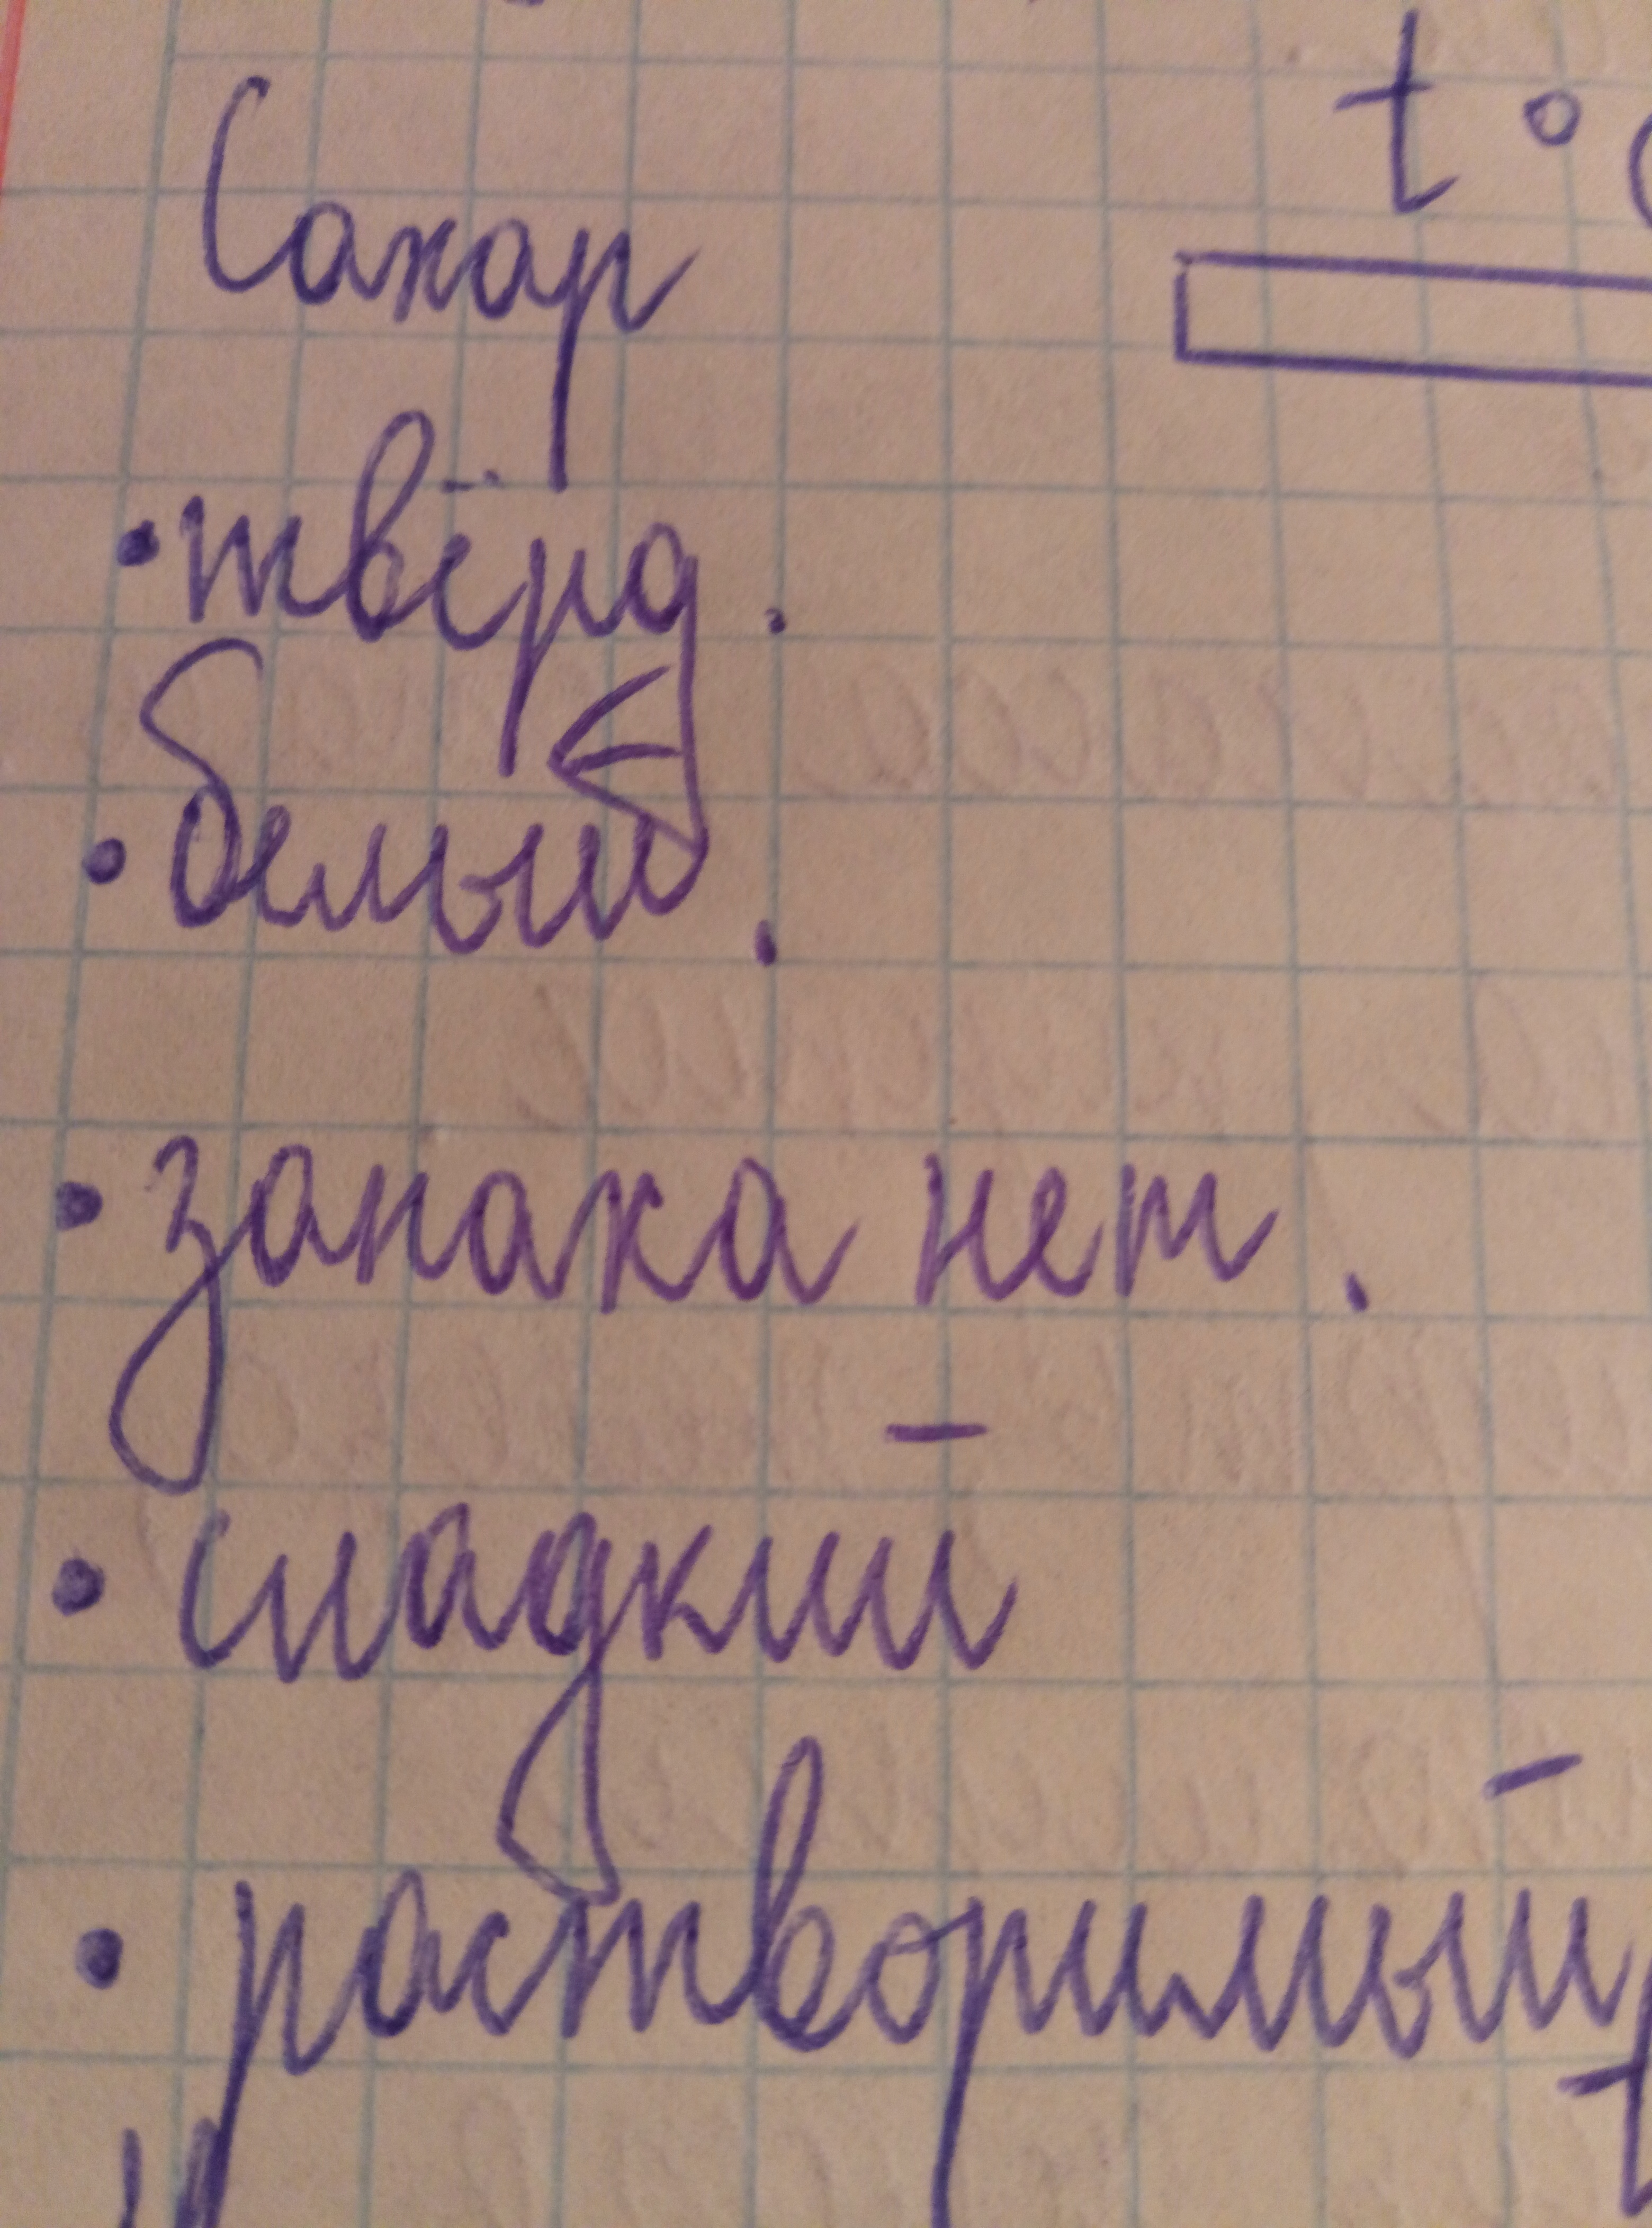 Сахар
t°
• твёрд.
• белый.
• запаха нет.
• сладкий
• растворимый